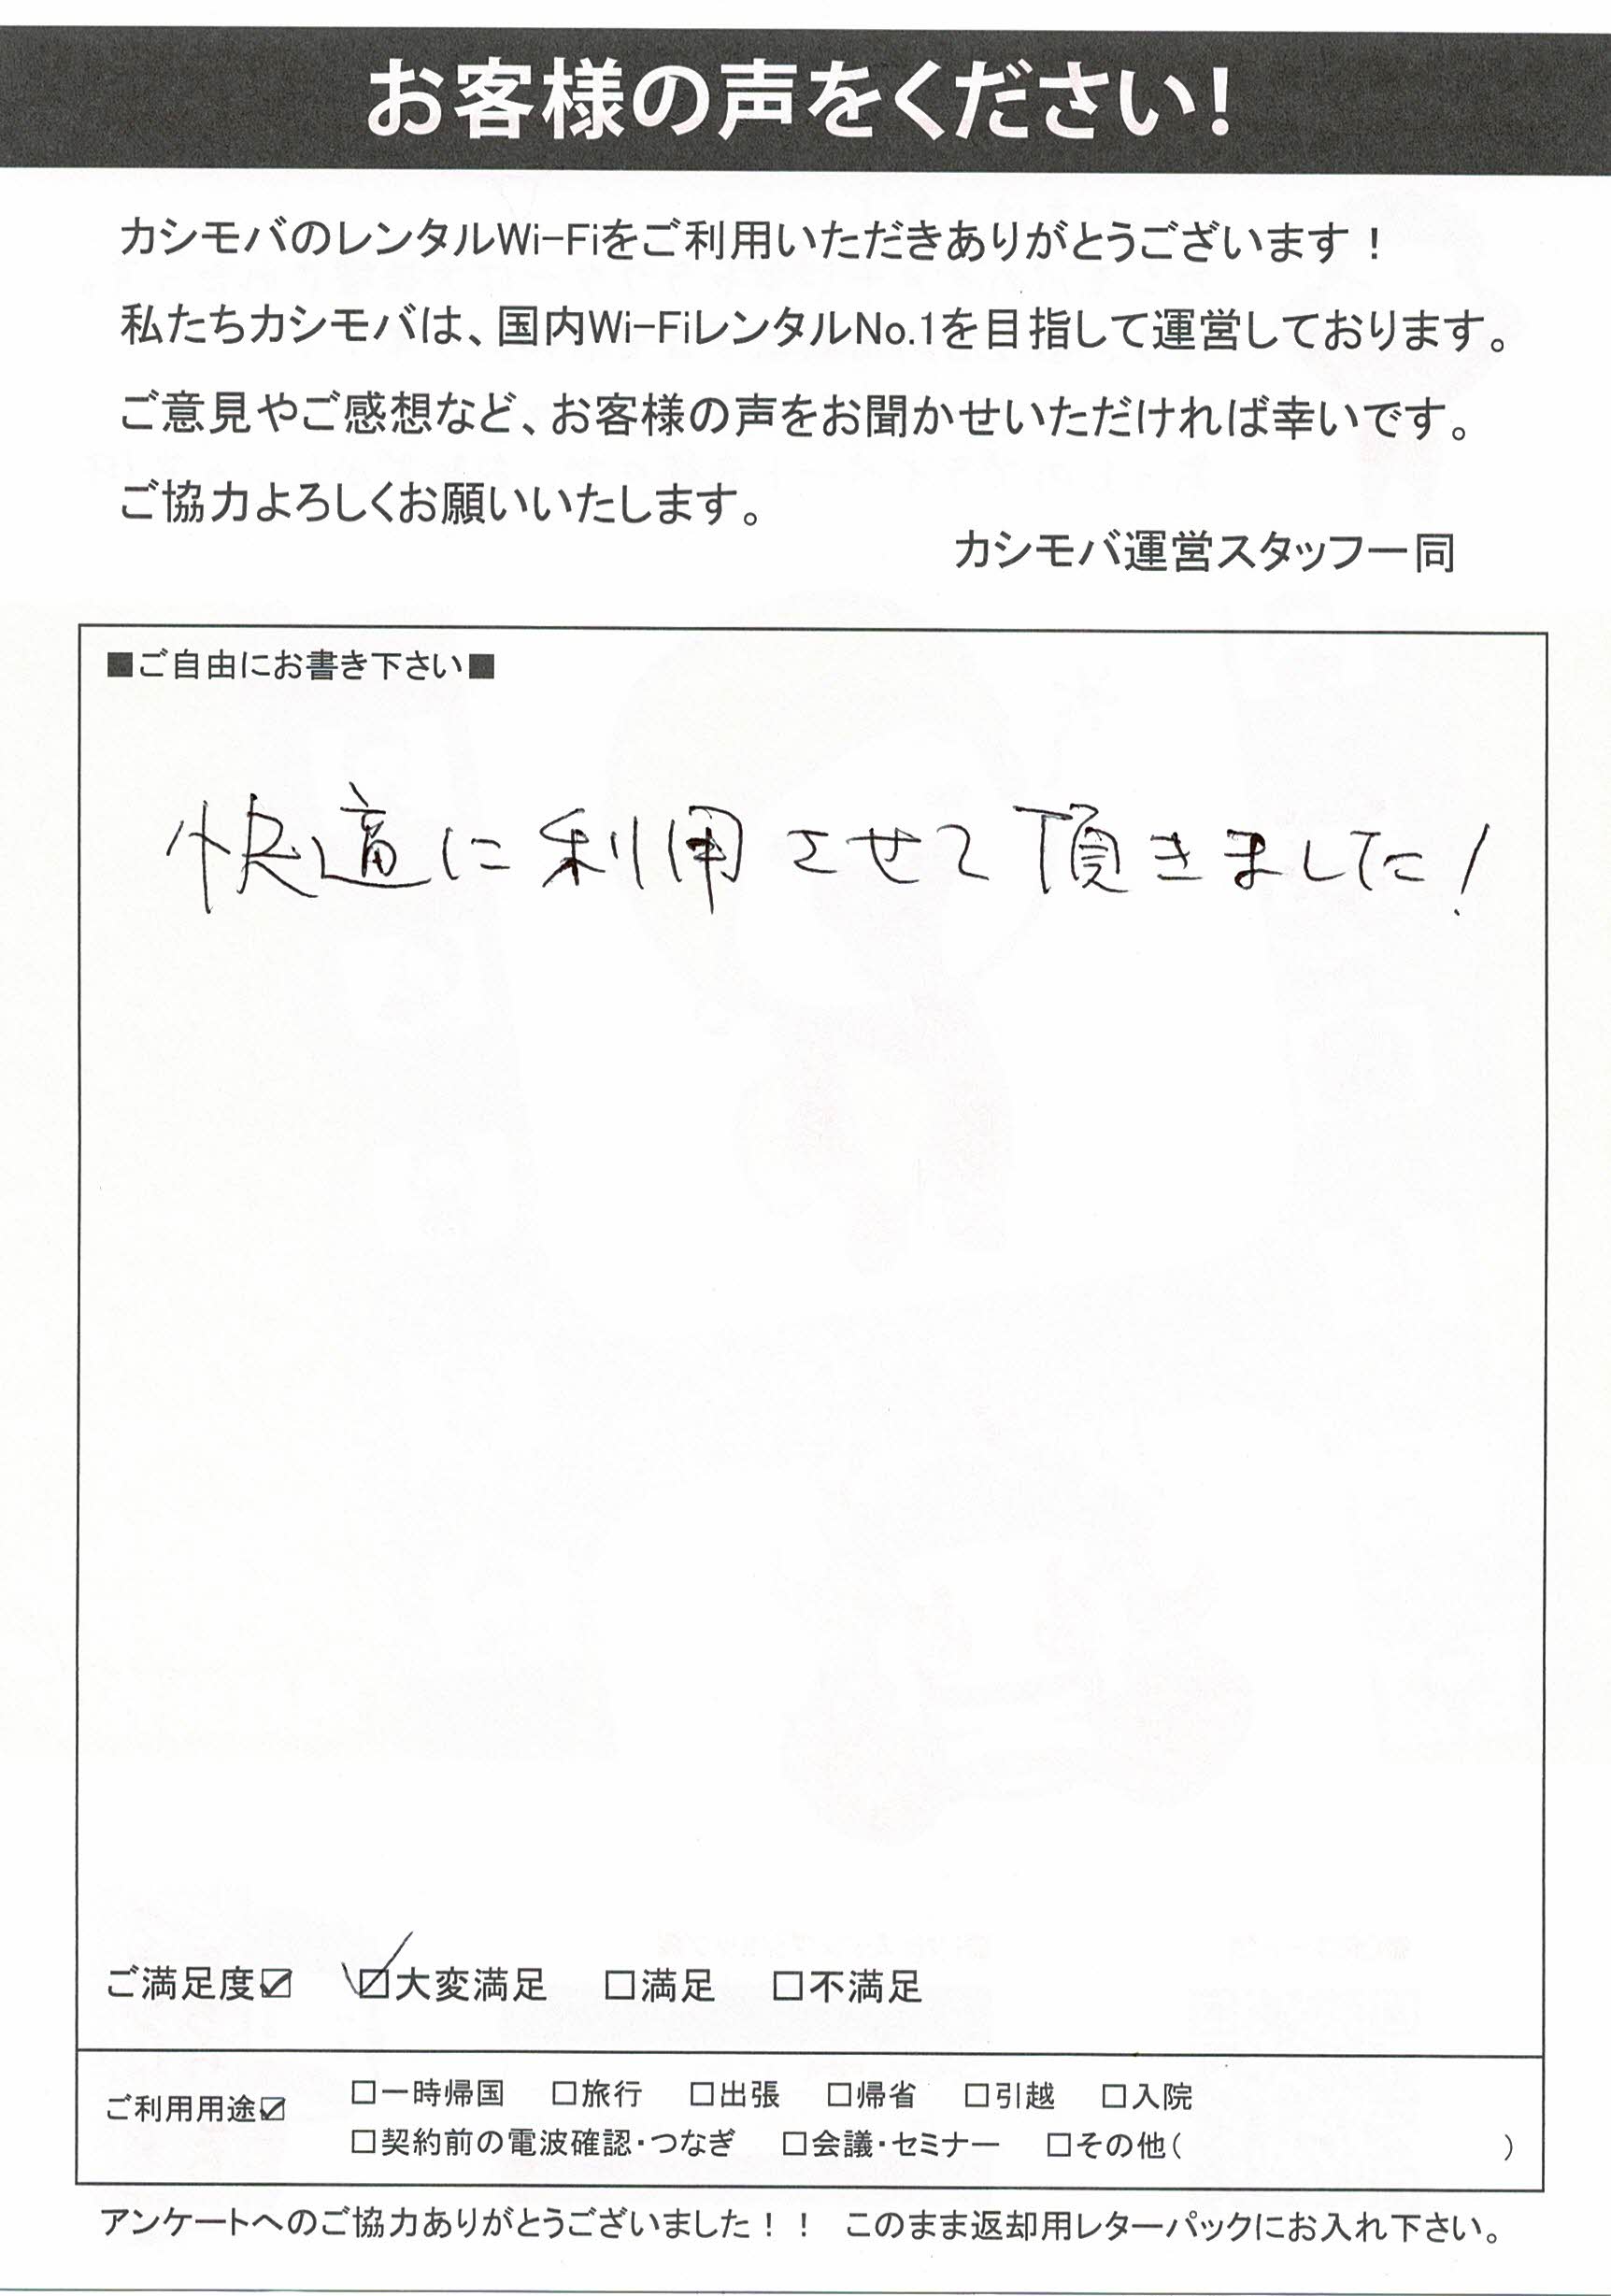 お客様の声をください!
カシモバのレンタルWi-Fiをご利用いただきありがとうございます！
私たちカシモバは、国内Wi-FiレンタルNo.1を目指して運営しております。
ご意見やご感想など、お客様の声をお聞かせいただければ幸いです。
ご協力よろしくお願いいたします。
カシモバ運営スタッフ一同
■ご自由にお書き下さい■
快適に利用させて頂きました!
ご満足度☑ ☑大変満足 □満足 □不満足
ご利用用途☑ □一時帰国 □旅行 □出張 □帰省 □引越 □入院
□契約前の電波確認・つなぎ □会議・セミナー □その他( )
アンケートへのご協力ありがとうございました！！ このまま返却用レターパックにお入れ下さい。